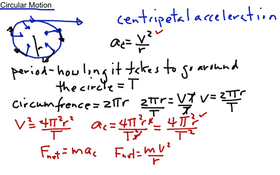 Circular Motion
centripetal acceleration
a_c = v²/r
r
period - how long it takes to go around
the circle = T
circumfrence = 2πr 2πr/T = VT/T V = 2πr/T
V² = 4π²r²/T a_c = 4π²r²/T²r = 4π²r/T²
F_net = ma_c F_net = mv²/r